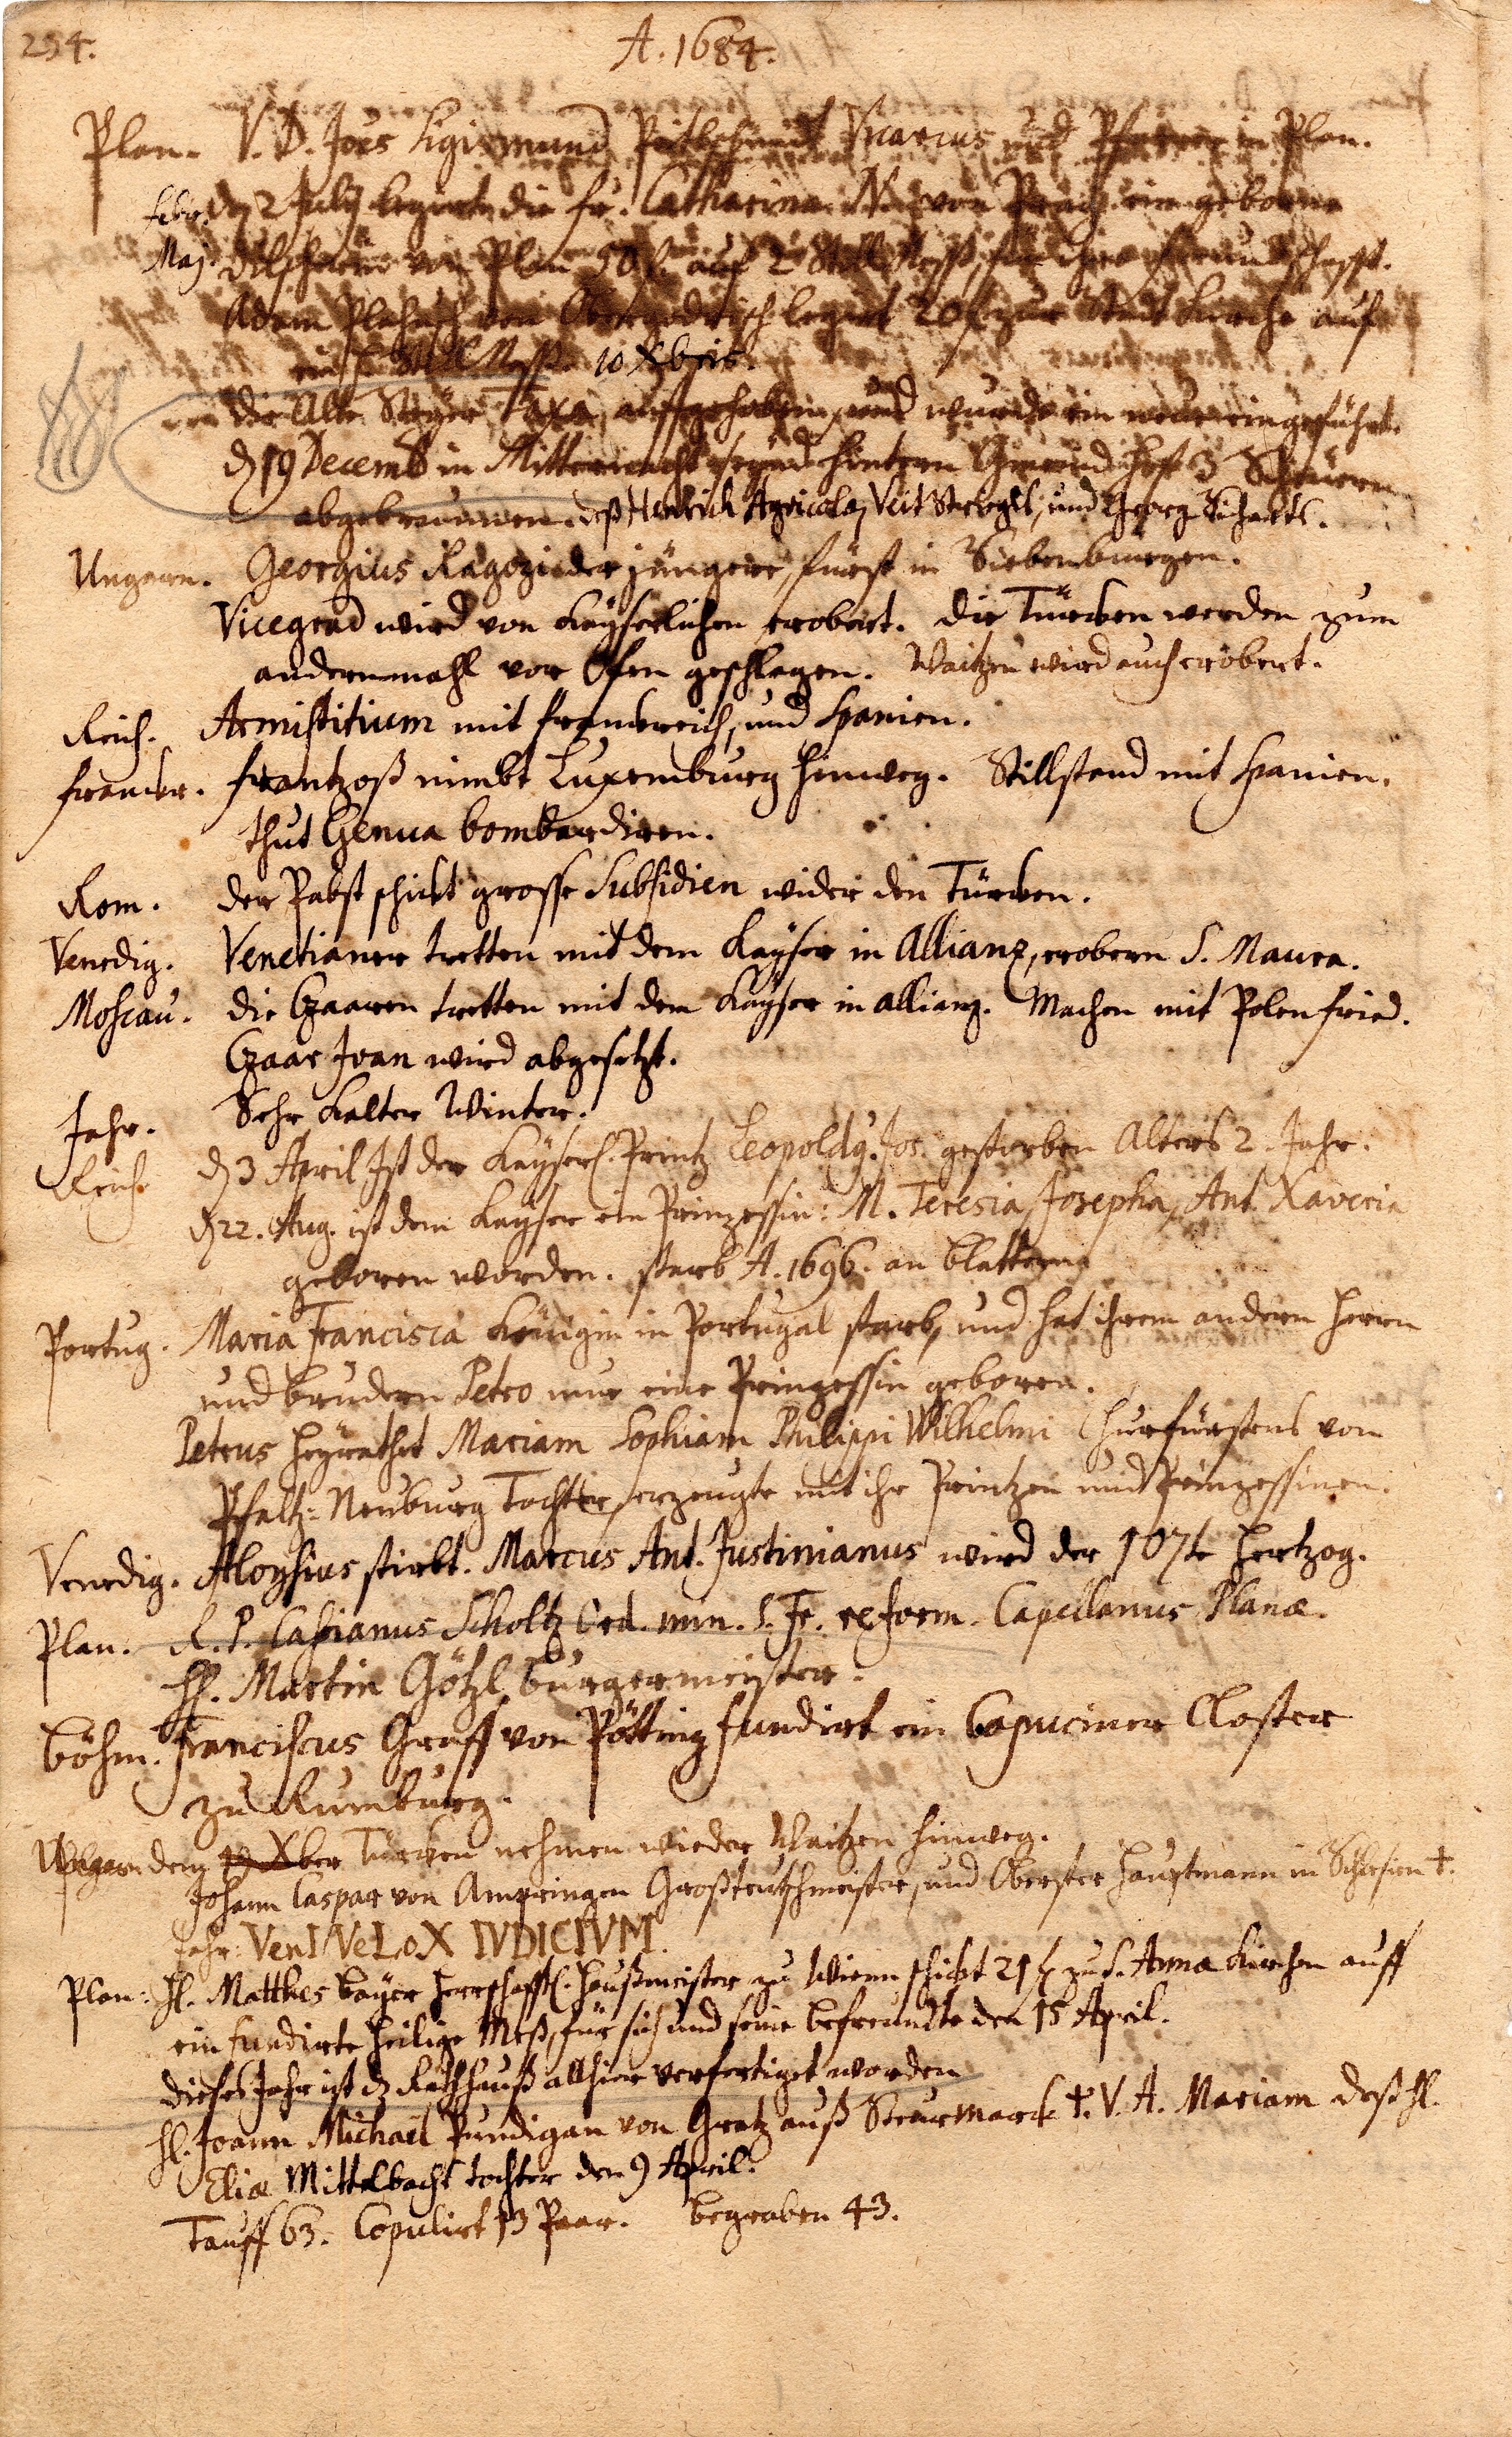 254.
A. 1684.
Plan. V. D. Joës Sigismund Vicarius und Pfarrer in Plan.
febr. dẽ 2 July legirte die fr. Catharina N. von Prag eine geborne
Maj. von Plan 50 f. auf 2 Still Meß, für ihre Freundschafft.
Adam von legirt 20 f zur Stadt Kirche auf
ein Still Meß. 10 Xbris.
die Alte Steÿer Taxa, aufgehoben, und wurde ein neue eingeführt.
dẽ 19 Decemb in Mitternacht seynd hintern 3 Scheuern
abgebrunnen. deß Henrich Agricola, Veit und Georg
Ungarn. Georgius Ragozi der jüngere, fürst in Siebenbürgen.
Vicegrad wird von Kayserlichen erobert. die Türcken werden zum
andernmahl vor Ofen geschlagen. Waitzen wird auch erobert.
Reich. Armistitium mit franckreich, und Spanien.
franckr. frantzoß nimbt Luxemburg hinweg. Stillstand mit Spanien.
thut Genua bombardiren.
Rom. der Pabst schickt grosse Subsidien wider den Türcken.
Venedig. Venetianer tretten mit dem Kayser in Allianz, erobern S. Maura.
Moscau. die Czaaren tretten mit dem Kayser in allianz. Machen mit Polen fried.
Czaar Ivan wird abgesetzt.
Jahr. Sehr Kalter Winter.
Reich. dẽ 3 April Ist der Kayserl. Printz Leopoldq. Jos. gestorben Alters 2. Jahr.
dẽ 22. Aug. ist dem Kayser ein Prinzessin: M. Teresia, Josepha, Ant. Xaveria
geboren worden. starb A. 1696. an blattern.
Portug. Maria Francisca Königin in Portugal starb, und hat ihrem andern Herrn
und brudern Petro nur eine Prinzessin geboren.
Petrus heÿrathet Mariam Sophiam Philippi Wilhelmi Churfürstens von
Pfaltz-Neuburg Tochter, erzeugte mit ihr Printzen und Prinzessinen.
Venedig. Aloysius stirbt. Marcus Ant. Justinianus wird der 107te Hertzog.
Plan. R. P. Casianus Scholtz Ord. min. S. Fr. reform. Capellanus Planæ.
H. Martin Götzl burgermeister.
böhm. Franciscus Graff von Pötting fundirt ein Capuciner Closter
zu Rumburg.
Ungarn den 19 Xber Türcken nehmen wieder Waitzen hinweg.
Johann Caspar von Ampringen Großteutschmeister, und Oberster Hauptmann in Schlesien †.
Jahr: VenI VeLoX IVDICIVM.
Plan: H. Matthes bayer Herrschafftl. Haußmeister zu Wienn schickt 21 f zu S. Anna Kirchen auff
ein fundirte heilige Meß, für sich und seine befreundte den 15 April.
dieses Jahr ist dz Rathhauß allhier verfertiget worden
H. Joann Michaël Pundigan von Gratz auß Steurmarck †. V. A. Mariam deß H.
Eliæ Mittelbach tochter den 9 April.
Tauff 63. Copulirt 13 Paar. begraben 43.